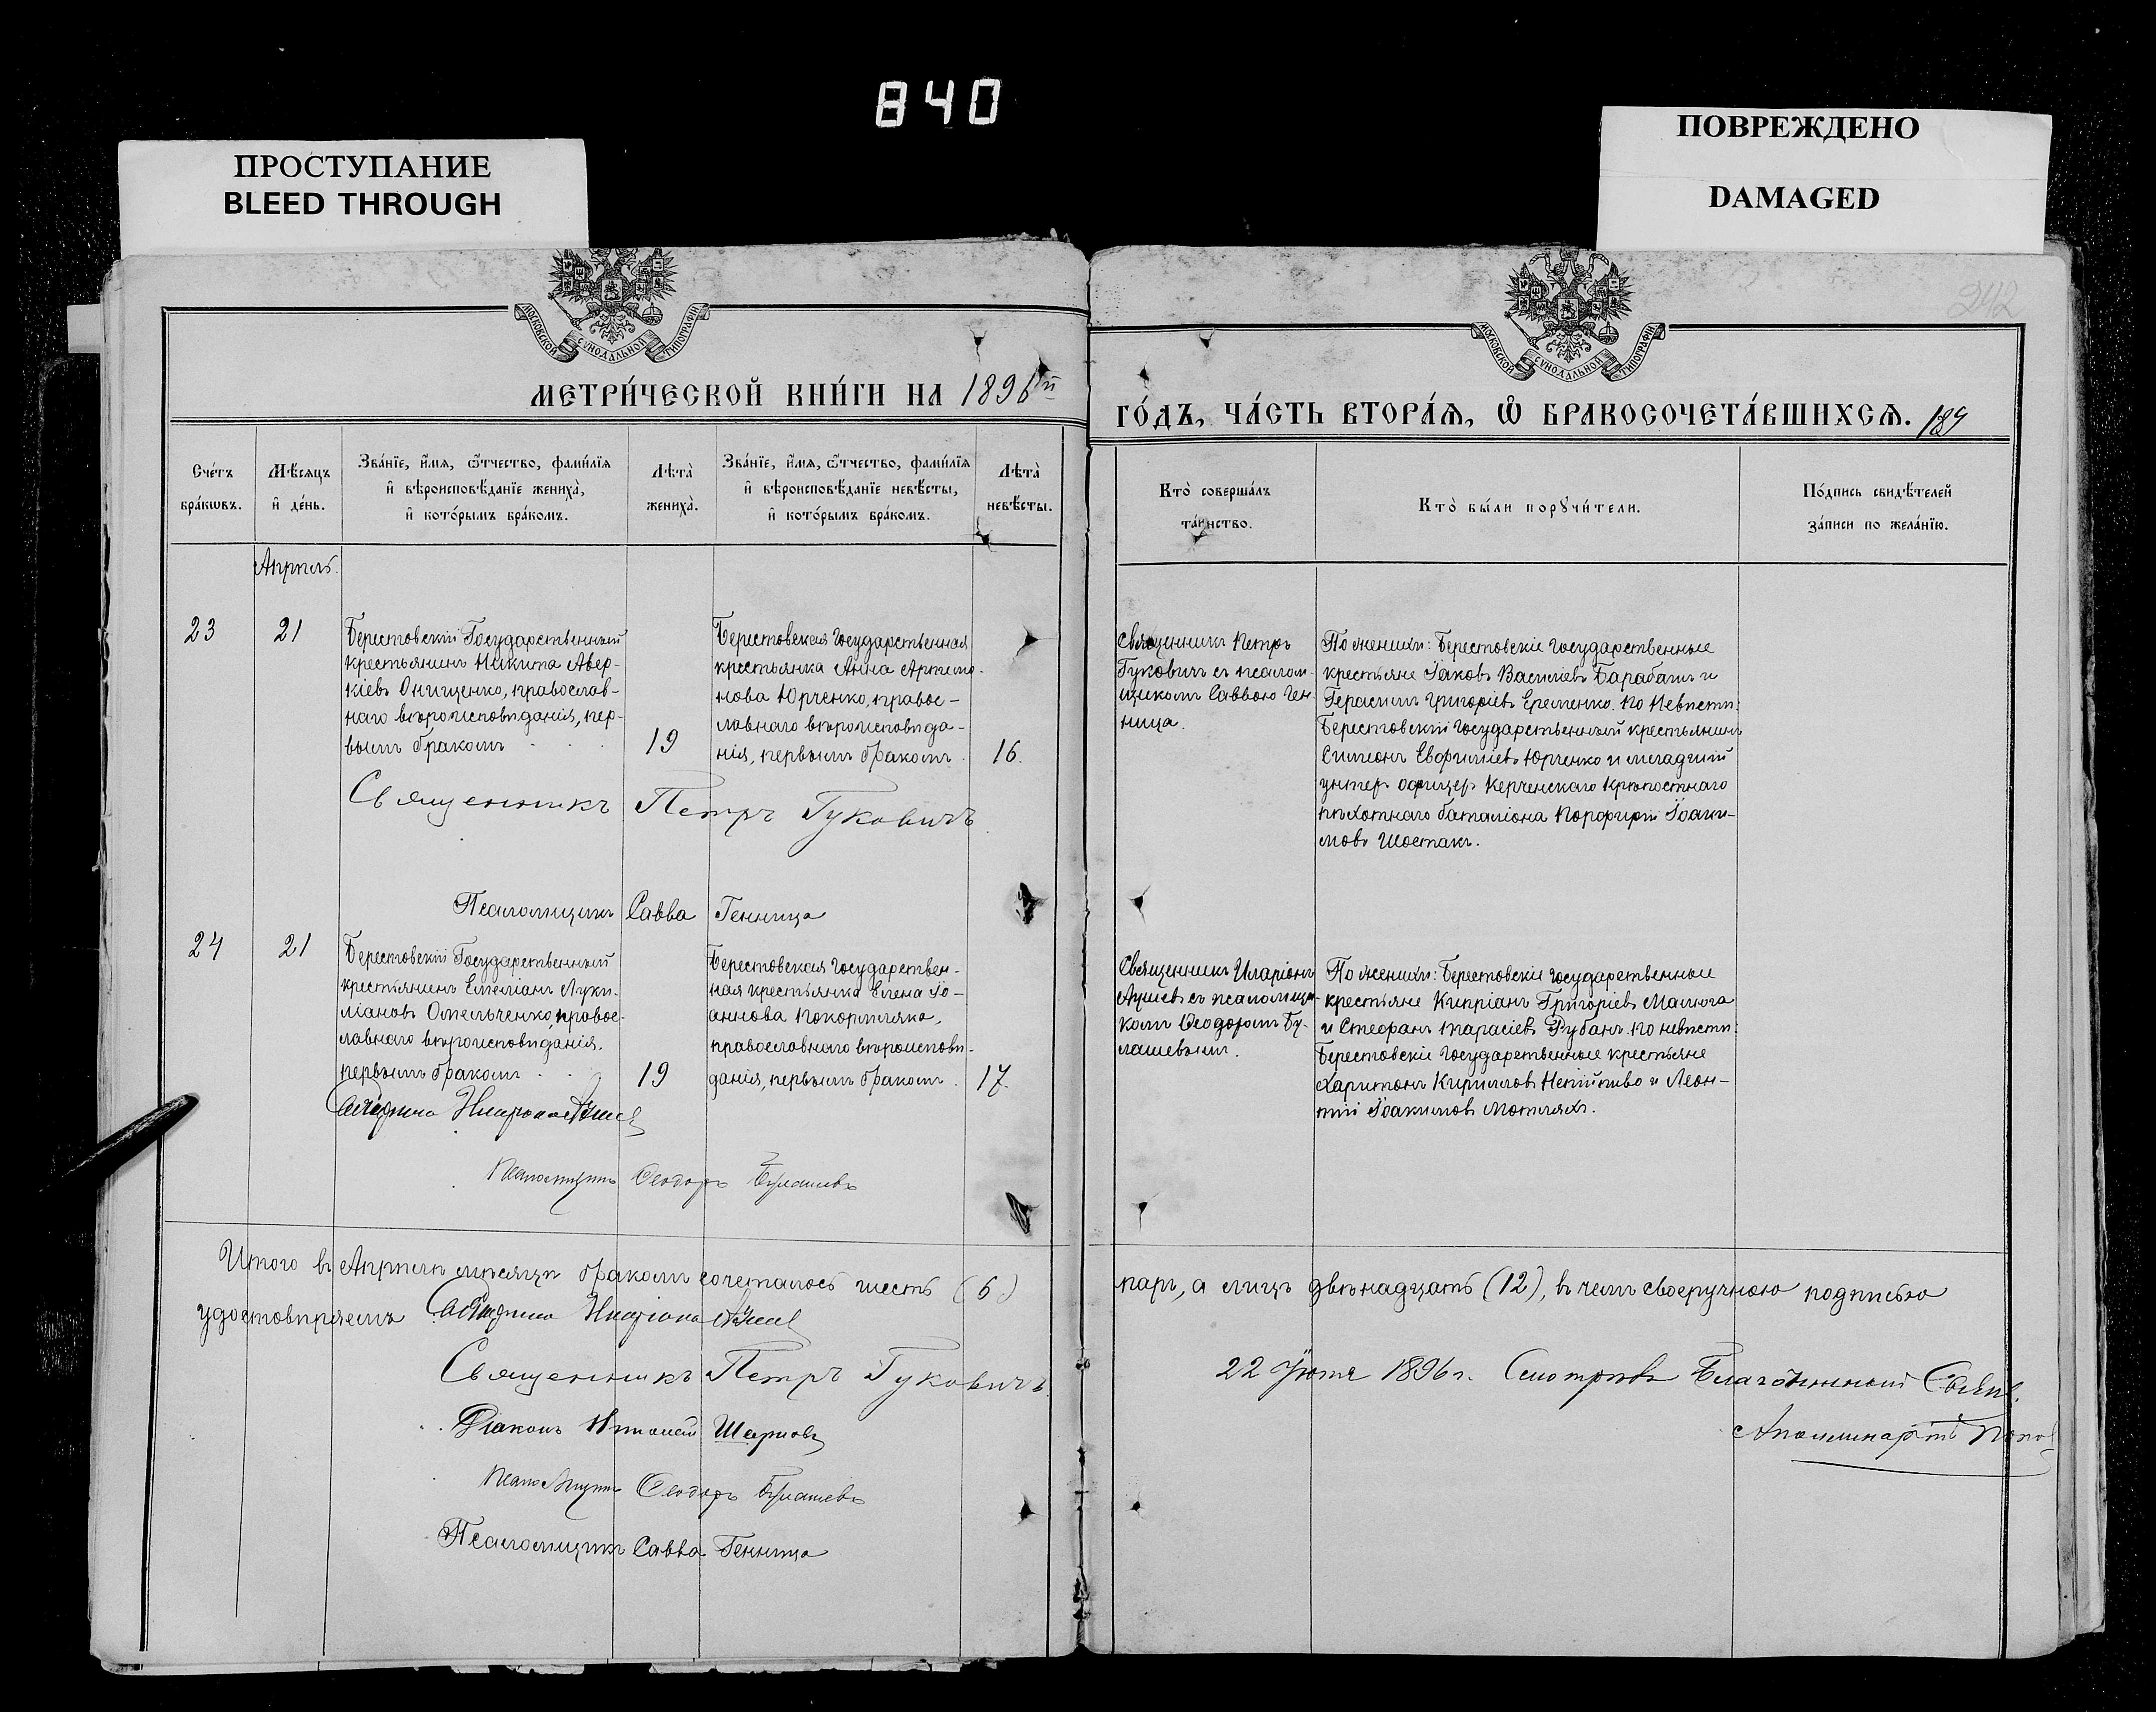 840
ПРОСТУПАНИЕ
BLEED THROUGH
ПОВРЕЖДЕНО
DAMAGED
МОСКОВСКОЙ СѴНОДАЛЬНОЙ ТИПОГРАФІИ
МОСКОВСКОЙ СѴНОДАЛЬНОЙ ТИПОГРАФІИ
242
МЕТРИ́ЧЕСКОЙ КНИ́ГИ НА 1896й
ГО́ДЪ, ЧА́СТЬ ВТОРА́Я, Ѡ҆ БРАКОСОЧЕТА́ВШИХСЯ. 189
Сче́тъ бра́кѡвъ.
Мѣ́сяцъ и҆ де́нь.
Зва́нїе, и҆́мя, ѻ҆́тчество, фами́лїя
и҆ вѣроисповѣ́данїе жениха̀,
и҆ кото́рымъ бра́комъ.
Лѣта̀ жениха̀.
Зва́нїе, и҆́мя, ѻ҆́тчество, фами́лїя
и҆ вѣроисповѣ́данїе невѣ́сты,
и҆ кото́рымъ бра́комъ.
Лѣта̀ невѣ́сты.
Кто̀ соверша́лъ
та́инство.
Кто̀ бы́ли порꙋчи́тели.
По́дпись свидѣ́телей
за́писи по жела́нїю.
Апрѣль.
23
21
Берестовскій Государственный
крестьянинъ Никита Авер-
кіевъ Онищенко, православ-
наго вѣроисповѣданія, пер-
вымъ бракомъ . . .
19
Берестовская Государственная
крестьянка Анна Артемо-
нова Юрченко, право-
славнаго вѣроисповѣда-
нія, первымъ бракомъ .
16.
Священникъ Петръ
Гуковичъ съ псалом-
щикомъ Саввою Ген-
ница.
По женихѣ: Берестовскіе Государственные
крестьяне Іаковъ Василіевъ Барабашъ и
Герасимъ Григоріевъ Еременко. По Невѣстѣ:
Берестовскій Государственный крестьянинъ
Симеонъ Евфиміевъ Юрченко и младшій
унтеръ офицеръ Керченскаго Крѣпостнаго
пѣхотнаго баталіона Порфирій Іоаки-
мовъ Шостакъ.
Священникъ Петръ Гуковичъ.
Псаломщикъ Савва Генница
24
21
Берестовскій Государственный
крестьянинъ Емеліанъ Луки-
ліановъ Омельченко, право-
славнаго вѣроисповѣданія.
первымъ бракомъ . . .
19
Берестовская Государствен-
ная крестьянка Елена Іо-
аннова Покормляко,
православнаго вѣроисповѣ-
данія, первымъ бракомъ .
17.
Священникъ Иларіонъ
съ псаломщи-
комъ Ѳеодоромъ Бу-
лашевымъ.
По женихѣ: Берестовскіе Государственные
крестьяне Кипріанъ Григоріевъ Малюга
и Стефанъ Тарасіевъ Рубанъ. По невѣстѣ:
Берестовскіе Государственные крестьяне
Харитонъ Кирилловъ и Леон-
тій Іоакимовъ Мотляхъ.
Псаломщикъ Ѳеодоръ Булашевъ
Итого въ Апрѣлѣ мѣсяцѣ бракомъ сочеталось шесть (6)
паръ, а лицъ двѣнадцать (12), въ чемъ своеручною подписью
удостовѣряемъ Иларіонъ
Священникъ Петръ Гуковичъ.
Діаконъ
Псаломщикъ Ѳеодоръ Булашевъ
Псаломщикъ Савва Генница
22 1896 г. Смотрѣлъ Благочинный Свящ.
Аполлинарій Поповъ